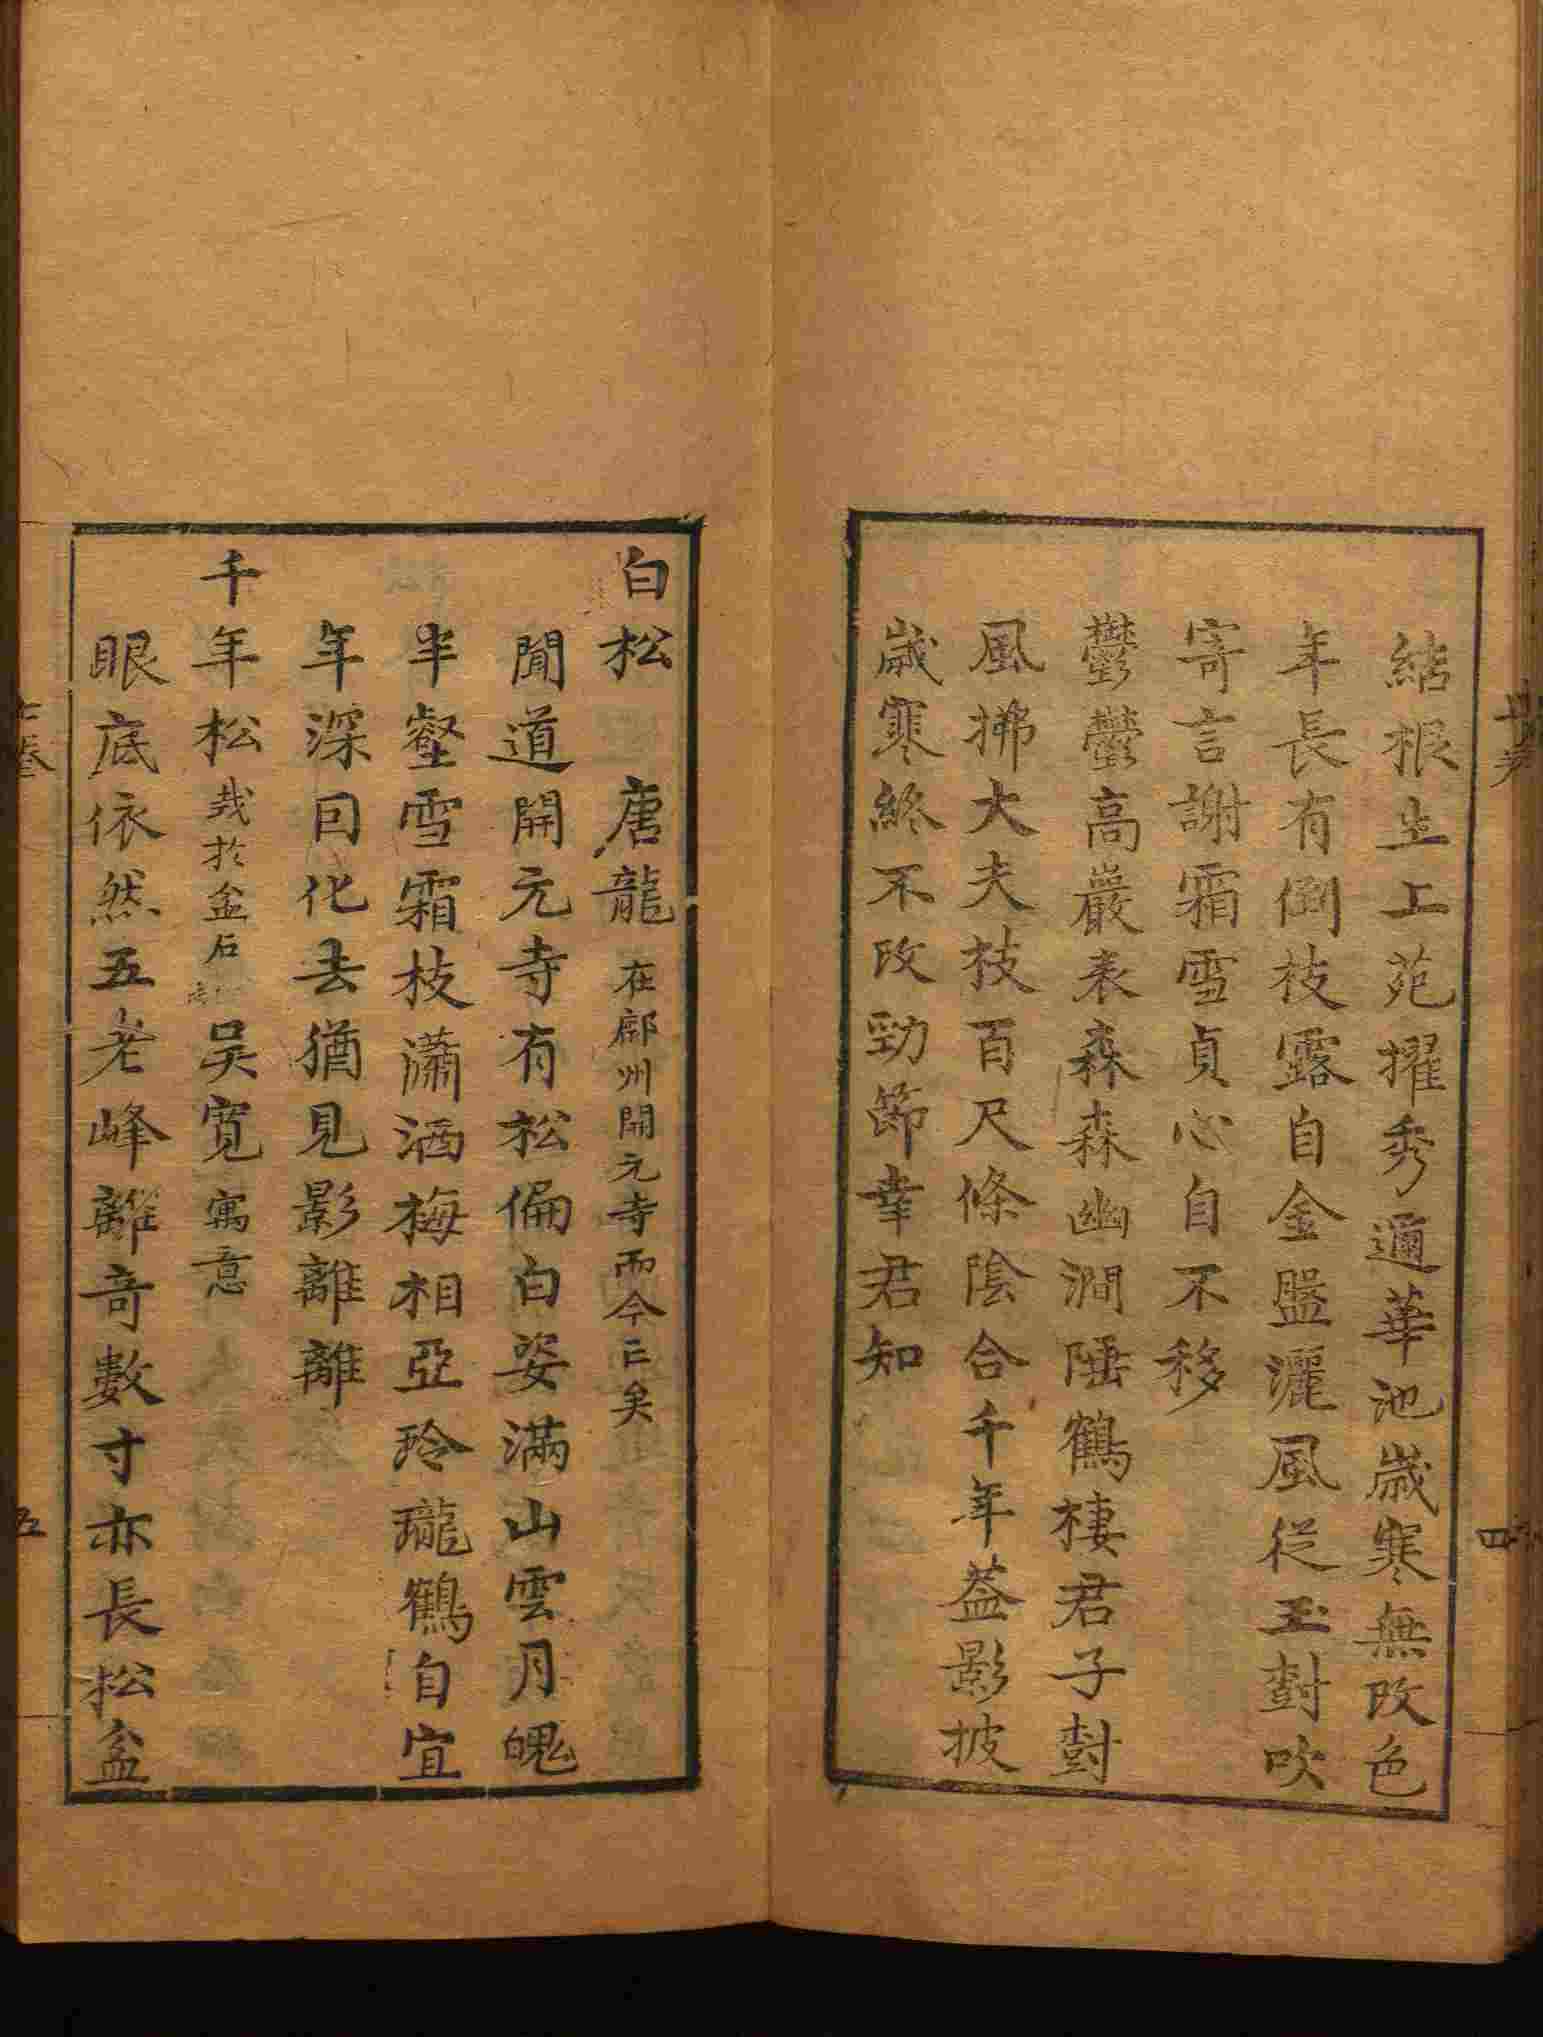 結根生上苑擢秀邇華池歲寒無改色
年長有倒枝露自金盤灑風從玉樹吹
寄言謝霜雪貞心自不移
鬱鬱高巖表森森幽澗陲鶴棲君子樹
風拂大夫枝百尺條陰合千年蓋影披
歲寒終不改勁節幸君知
四
白松　唐龍　在鄜州開元寺而今亡矣
聞道開元寺有松偏白姿滿山雲月魄
半壑雪霜枝瀟洒梅相亞玲瓏鶴自宜
年深回化去猶見影離離
千年松　栽於盆石　吳寬　寓意
眼底依然五老峰離奇數寸亦長松盆
五